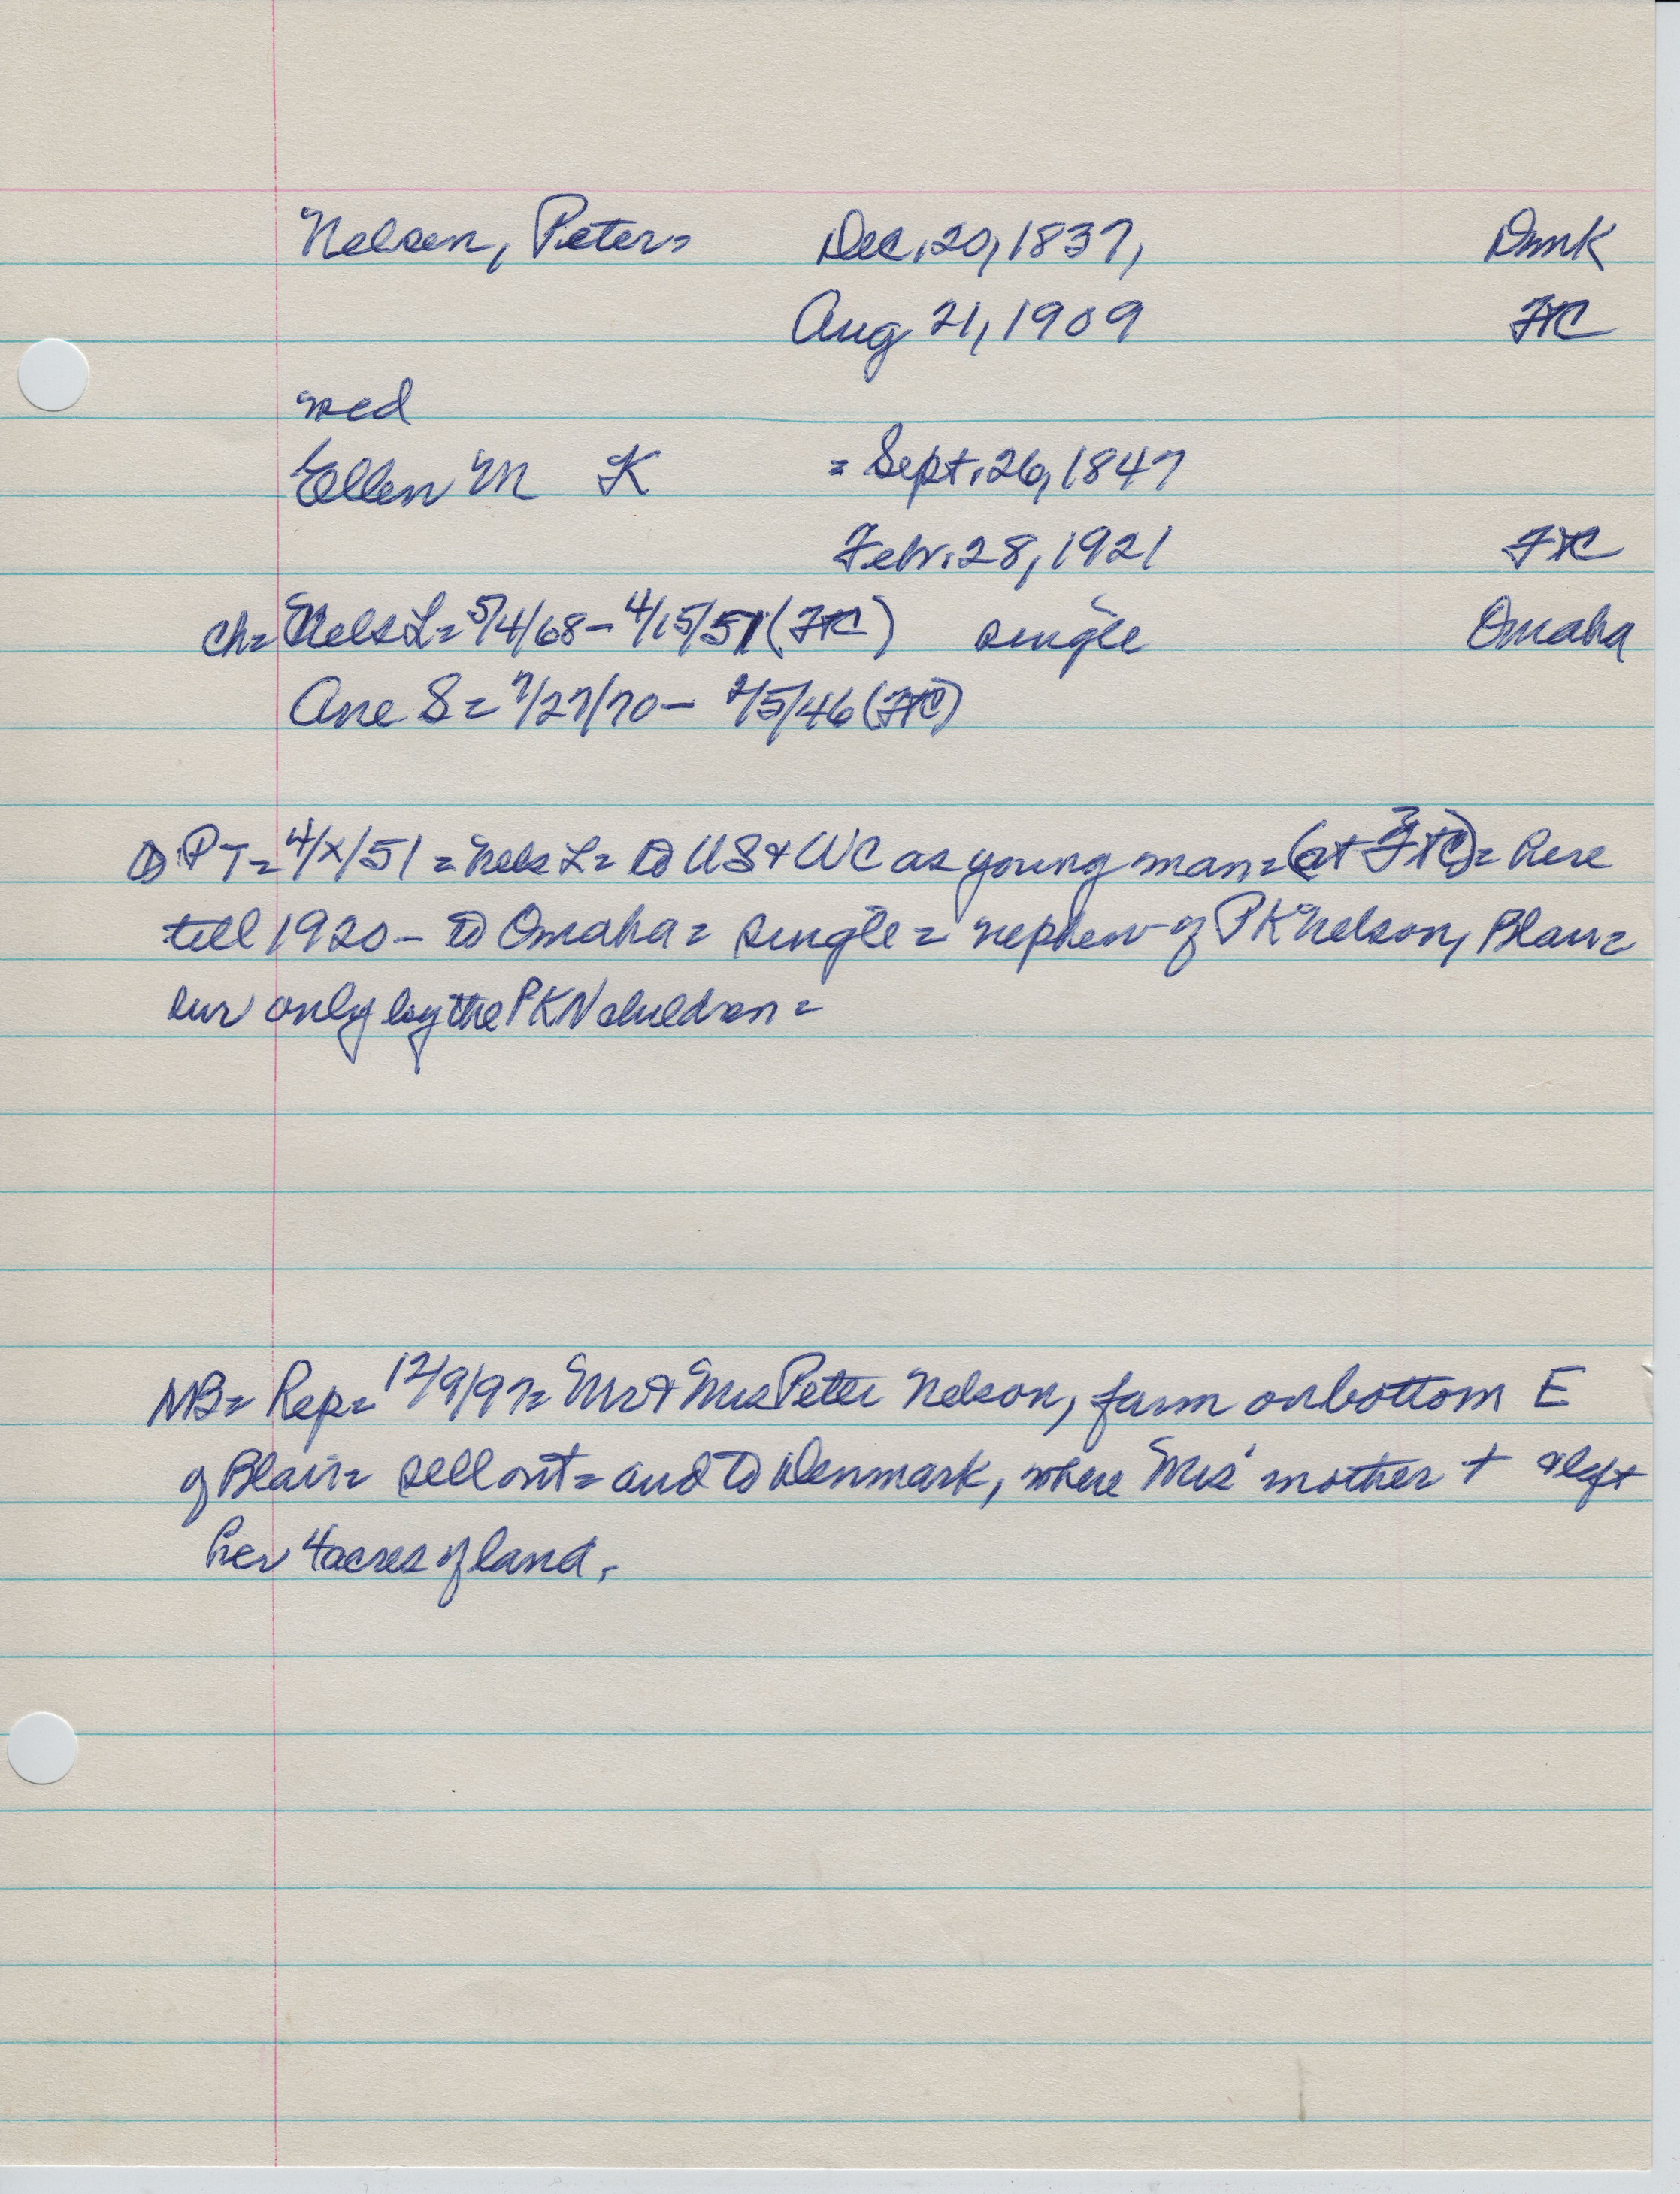 Nelsen, Peter= Dec. 20, 1837, Dmk
Aug 21, 1909 FtC
wed
Ellen M K = Sept. 26, 1847
Febr. 28, 1921 FtC
ch= Nels L= 5/4/68 – 4/15/51 (FtC) single Omaha
Ane S= 7/27/70 – 2/5/46 (FtC)
PT= 4/x/51 = Nels L= to US & WC as young man= (at FtC)= here
till 1920 – to Omaha= single= nephew of PK Nelson, Blair=
sur only by the PKN children=
NB= Rep= 12/9/97= Mr & Mrs Peter Nelson, farm on bottom E
of Blair= sell out= and to Denmark, where Mrs' mother + & left
her 4 acres of land.